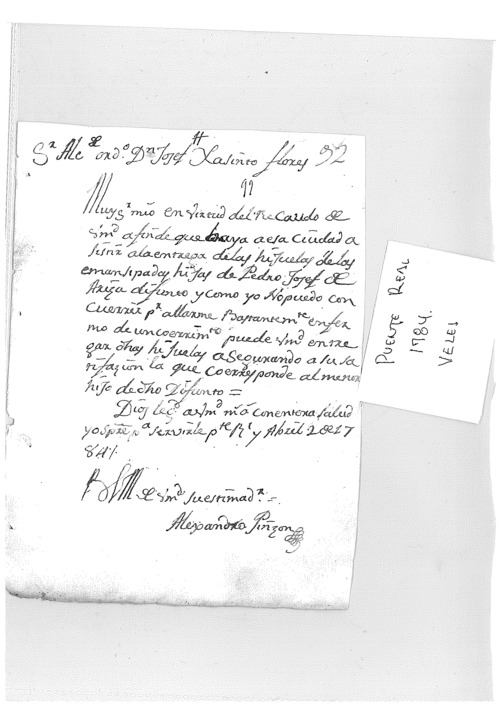 Sr Alce ordo Dn Josef Xasinto flores 92
Muy Sr mio en virtud del Recaudo de
Vmd afin de que baya a esa Ciudad a
sistir ala entrega delas hijuelas de las
emansipadas hijas de Pedro Josef de
Ariza difunto y como yo no puedo con
Currir pr allarme Bastantemte enfer
mo de un coerrimto puede Vmd entre
gar dhas hijuelas asegurando a su sa
tisfazion la que Coerresponde al menor
hijo de dho Difunto =
Dios gue a Vmd ms as con entera salud
yo spre pa servirle pte Rl y Abril 2 de 17
84 as
B L M de Vmd su estimador =
Alexandro Pinzon
PUENTE REAL
1784.
VELEZ